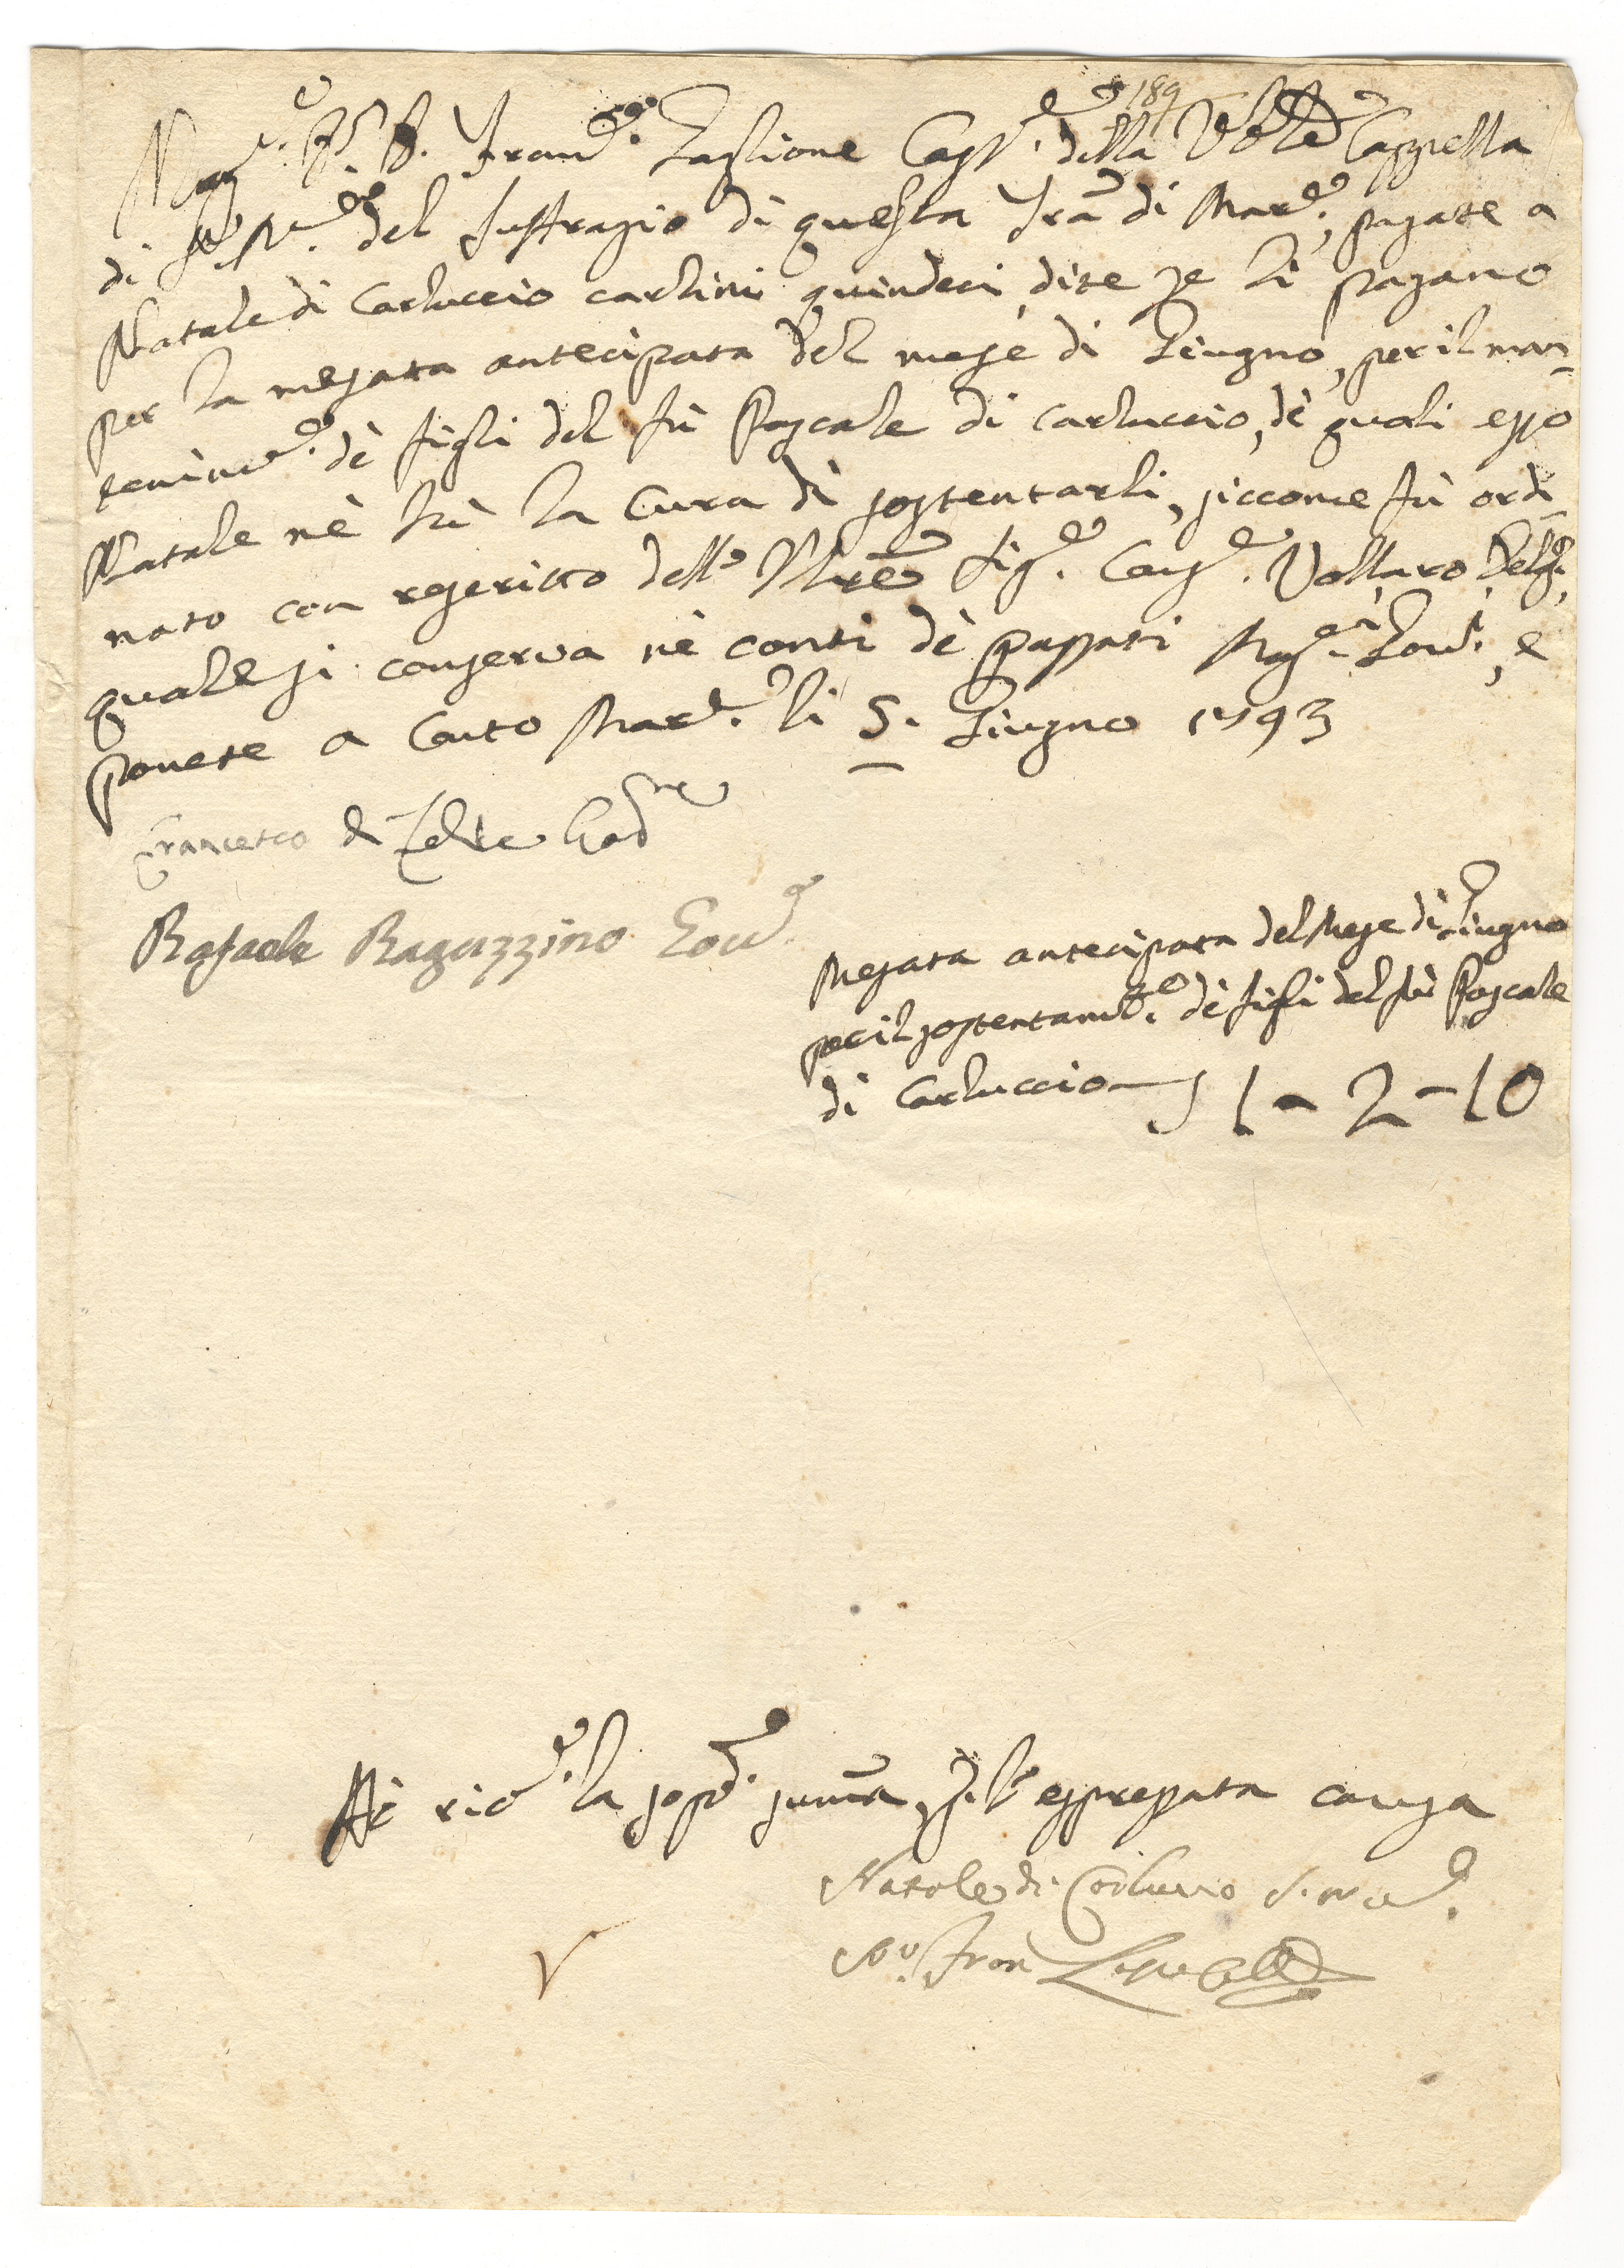 189
Franc.co Taglione Cass.re della Vble Cappella
di del Suffragio di questa Tra di Mar.e, pagate a
Natale di Carluccio carlini quindeci, dite se li pagano
per la mesata antecipata del mese di Giugno, per il man-
tenim.to dè figli del fù Pascale di Carluccio, dè quali esso
Natale nè hà la cura di sostentarli, siccome fù ordi-
nato con rescritto dell' Ill.re Sig.e Cons.e Vollaro Deleg.,
quale si conserva nè conti dè passati Mag.ci Gov.i, e
ponete a Conto Mar.e li 5. Giugno 1793
Francesco di Gov.re
Rafaele Raguzzino Gov.e
Mesata antecipata del Mese di Giugno
per il sostentam.to dè figli del fù Pascale
di Carluccio 1-2-10
Hò ric.to la sopd.a summa p. l' espressata causa
Natale di Carluccio
Fran